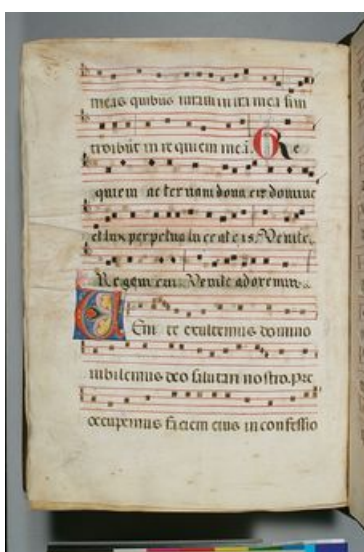 meas quibus iuraui in ira mea si in
troibūt in requiem meā. Re
quiem ae ter nam dona eis domine
et lux perpetua lu ce at e is. Venite.
Regem cui. Venite adoremus.
Veni te exultemus domino
iubilemus deo salutari nostro. pre
occupemus faciem eius in confessio